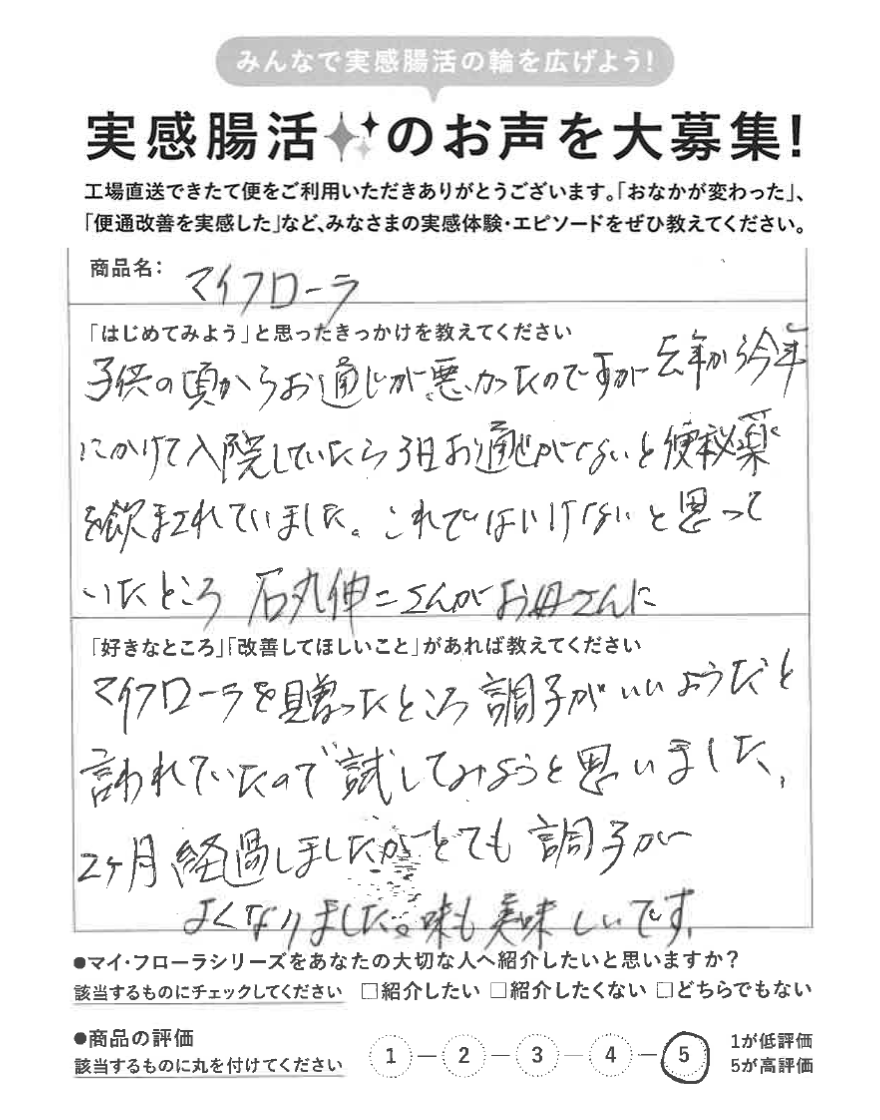 みんなで実感腸活の輪を広げよう!
実感腸活のお声を大募集!
工場直送できたて便をご利用いただきありがとうございます。「おなかが変わった」、
「便通改善を実感した」など、みなさまの実感体験・エピソードをぜひ教えてください。
商品名: マイフローラ
「はじめてみよう」と思ったきっかけを教えてください
子供の頃からお通じが悪かったのですが去年から今年
にかけて入院していたら3日お通じがないと便秘薬
を飲まされていました。これではいけないと思って
いたところ 石丸伸二さんがお母さんに
「好きなところ」「改善してほしいこと」があれば教えてください
マイフローラを贈ったところ調子がいいようだと
言われていたので試してみようと思いました、
2ヶ月経過しましたがとても調子が
よくなりました。味も美味しいです、
●マイ・フローラシリーズをあなたの大切な人へ紹介したいと思いますか?
該当するものにチェックしてください □紹介したい □紹介したくない □どちらでもない
●商品の評価
該当するものに丸を付けてください
1 — 2 — 3 — 4 — 5
1が低評価
5が高評価